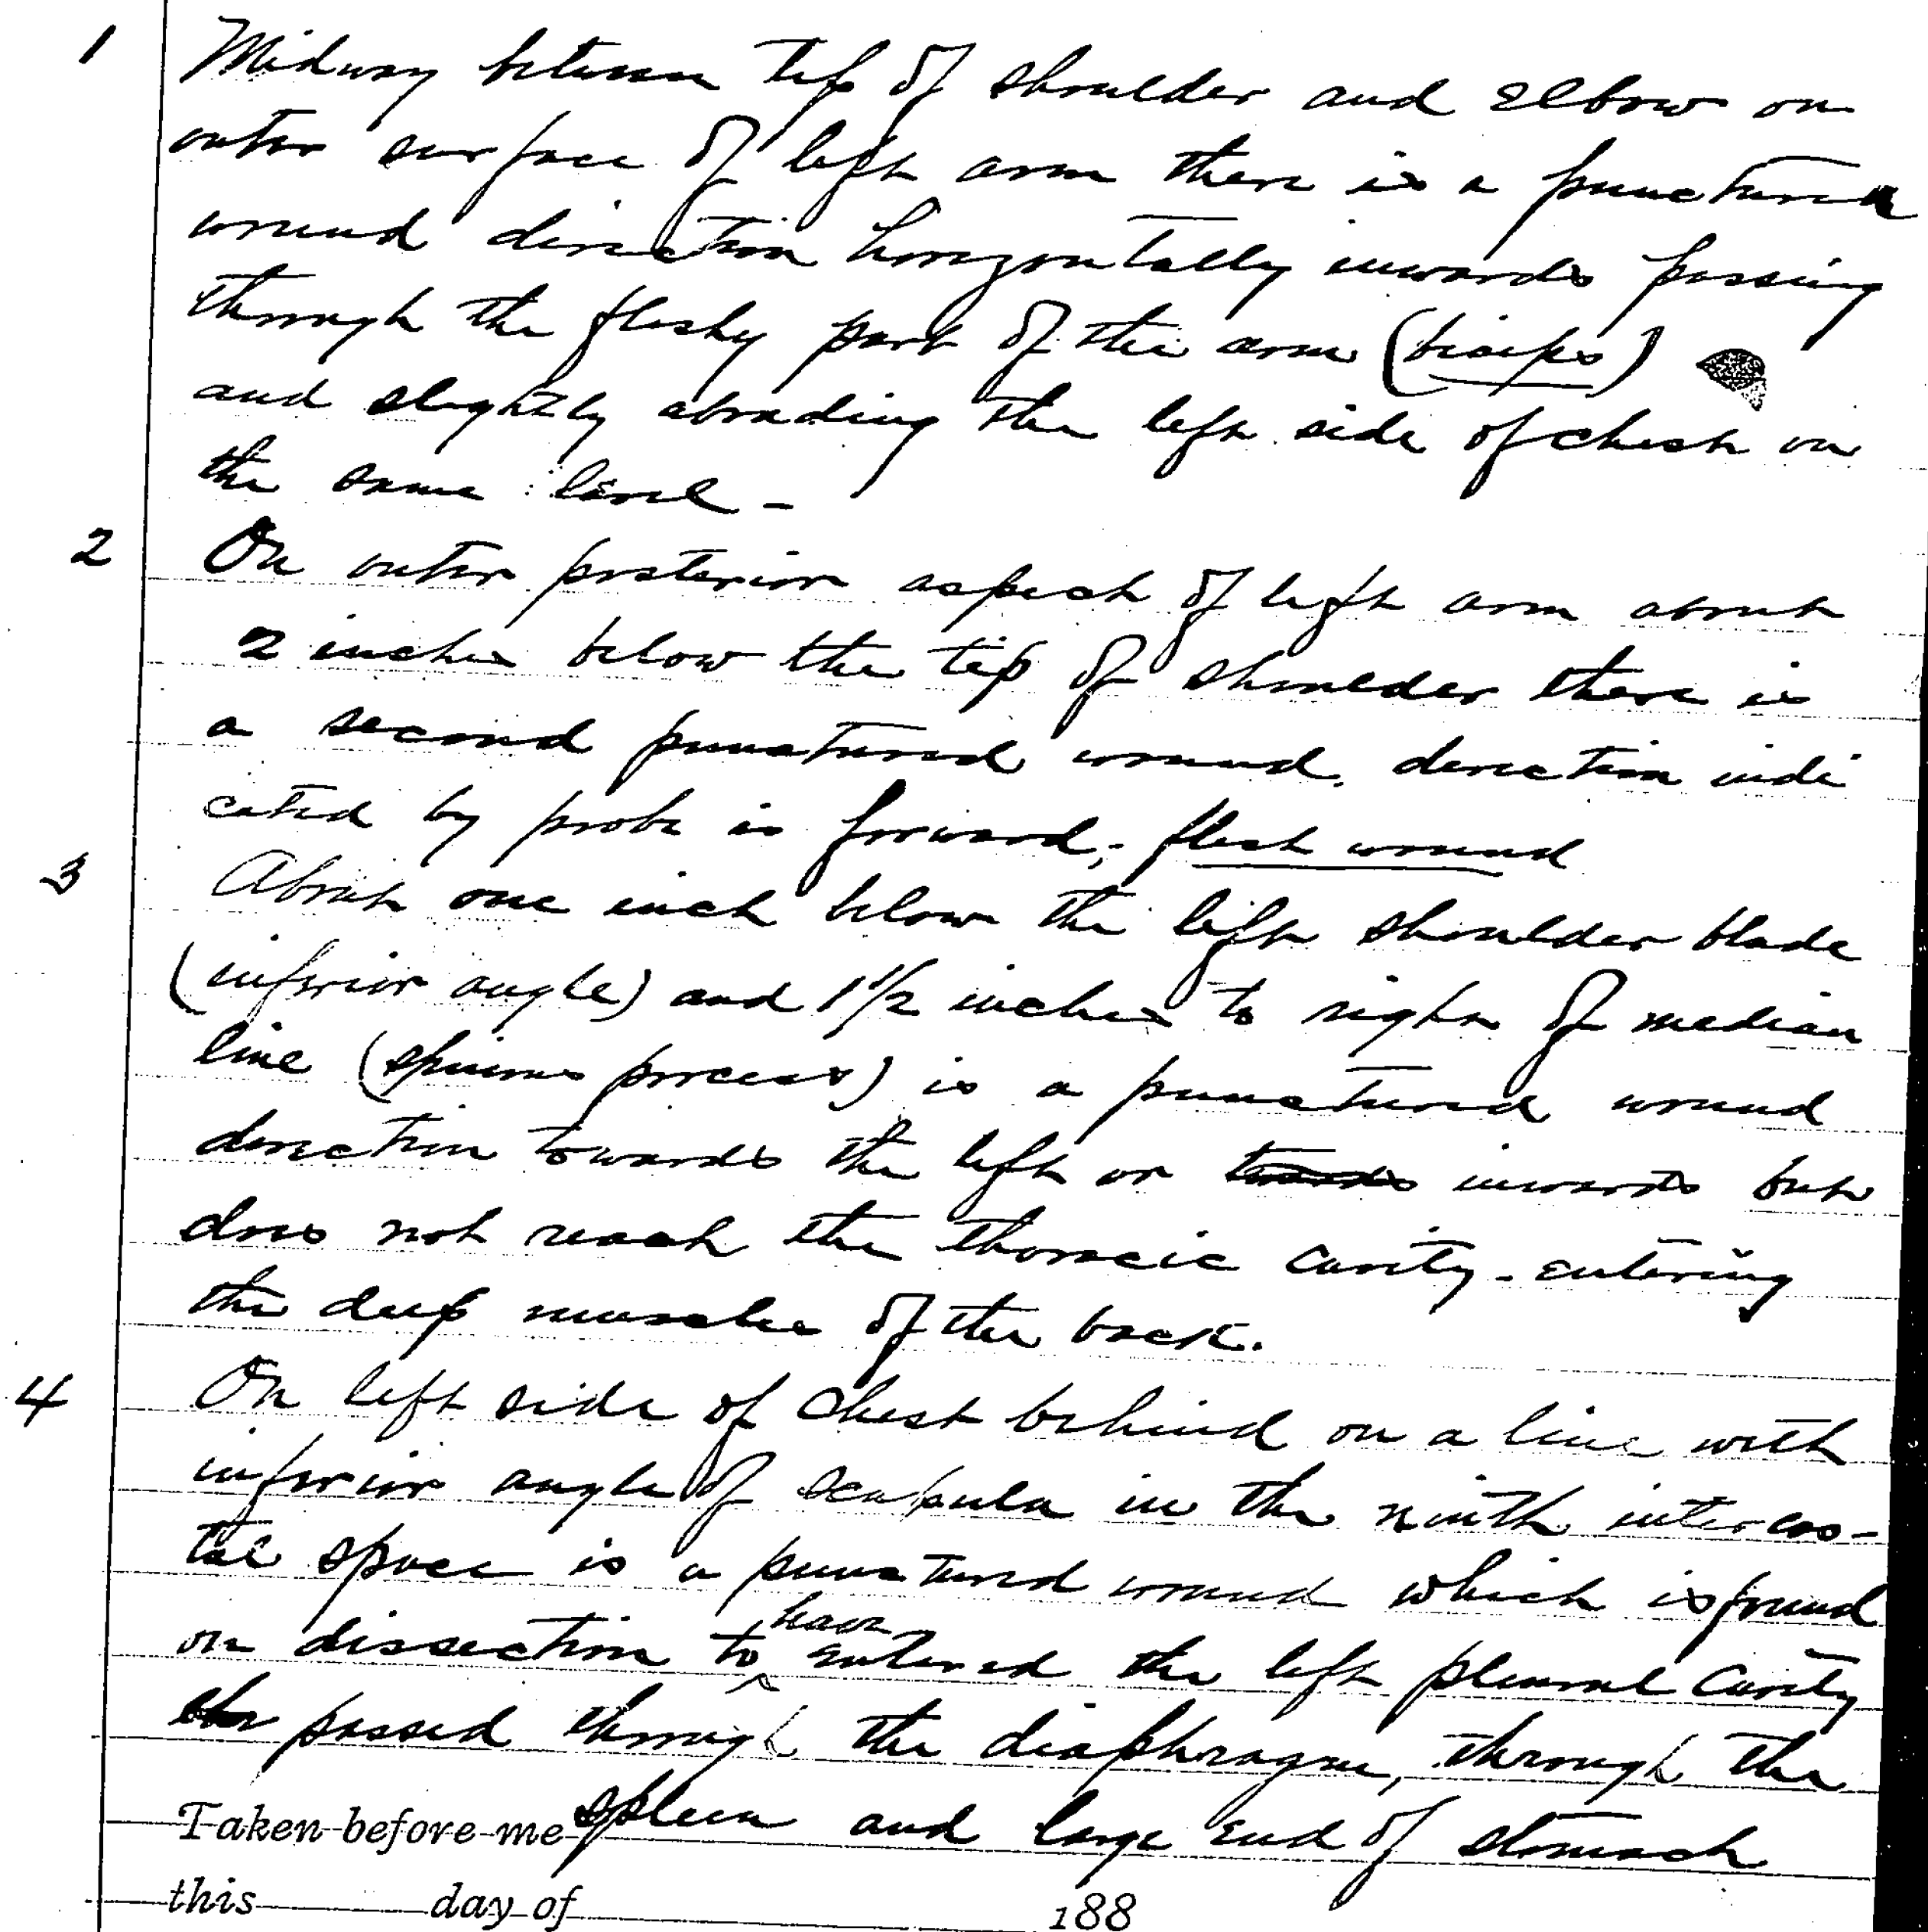 1 Midway between tip of shoulder and elbow on
outer surface of left arm there is a punctured
wound direction horizontally inwards passing
through the fleshy part of the arm (biceps)
and slightly abrading the left side of chest on
the same level -
2 On outer posterior aspect of left arm about
2 inches below the tip of shoulder there is
a second punctured wound. direction indi
cated by probe is forward; flesh wound
3 About one inch below the left shoulder blade
(inferior angle) and 1 1/2 inches to right of median
line (spinous process) is a punctured wound
direction towards the left or towards inwards but
does not reach the thoracic cavity - entering
the deep muscles of the back.
4 On left side of chest behind on a line with
inferior angle of scapula in the ninth intercos-
tal space is a punctured wound which is found
on dissection to have entered the left pleural cavity
passed through the diaphragm, through the
Taken before me spleen and large end of stomach
this day of 188